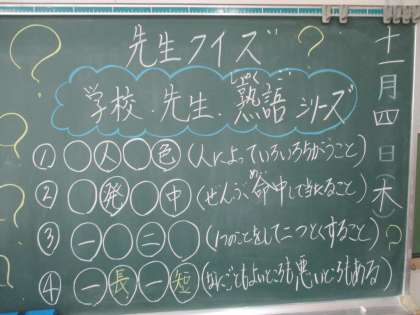 先生クイズ
学校・先生・熟語シリーズ
じゅく
① ○人○色 (人によっていろいろちがうこと)
② ○発○中 (ぜんぶ命中して当たること)
③ 一○二○ (1つのことをして二つとくすること)
④ 一長一短 (なにごともよいところも悪いところもある)
十一月四日(木)